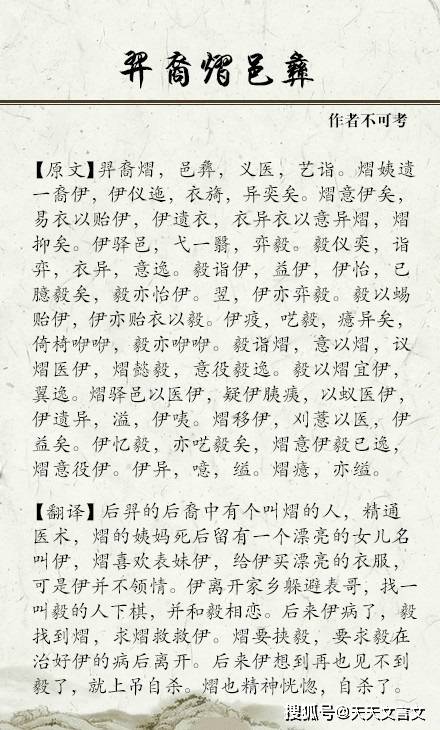 羿裔熠邑彝
作者不可考
【原文】羿裔熠，邑彝，义医，艺诣。熠姨遗
一裔伊，伊仪迤，衣旖，异奕矣。熠意伊矣，
易衣以贻伊，伊遗衣，衣异衣以意异熠，熠
抑矣。伊驿邑，弋一翳，弈毅。毅仪奕，诣
弈，衣异，意逸。毅诣伊，益伊，伊怡，已
臆毅矣，毅亦怡伊。翌，伊亦弈毅。毅以蜴
贻伊，伊亦贻衣以毅。伊疫，呓毅，癔异矣，
倚椅咿咿，毅亦咿咿。毅诣熠，意以熠，议
熠医伊，熠懿毅，意役毅逸。毅以熠宜伊，
翼逸。熠驿邑以医伊，疑伊胰痍，以蚁医伊，
伊遗异，溢，伊咦。熠移伊，刈薏以医，伊
益矣。伊忆毅，亦呓毅矣，熠意伊毅已逸，
熠意役伊。伊异，噫，缢。熠癔，亦缢。
【翻译】后羿的后裔中有个叫熠的人，精通
医术，熠的姨妈死后留有一个漂亮的女儿名
叫伊，熠喜欢表妹伊，给伊买漂亮的衣服，
可是伊并不领情。伊离开家乡躲避表哥，找一
叫毅的人下棋，并和毅相恋。后来伊病了，毅
找到熠，求熠救救伊。熠要挟毅，要求毅在
治好伊的病后离开。后来伊想到再也见不到
毅了，就上吊自杀。熠也精神恍惚，自杀了。
搜狐号@天天文言文